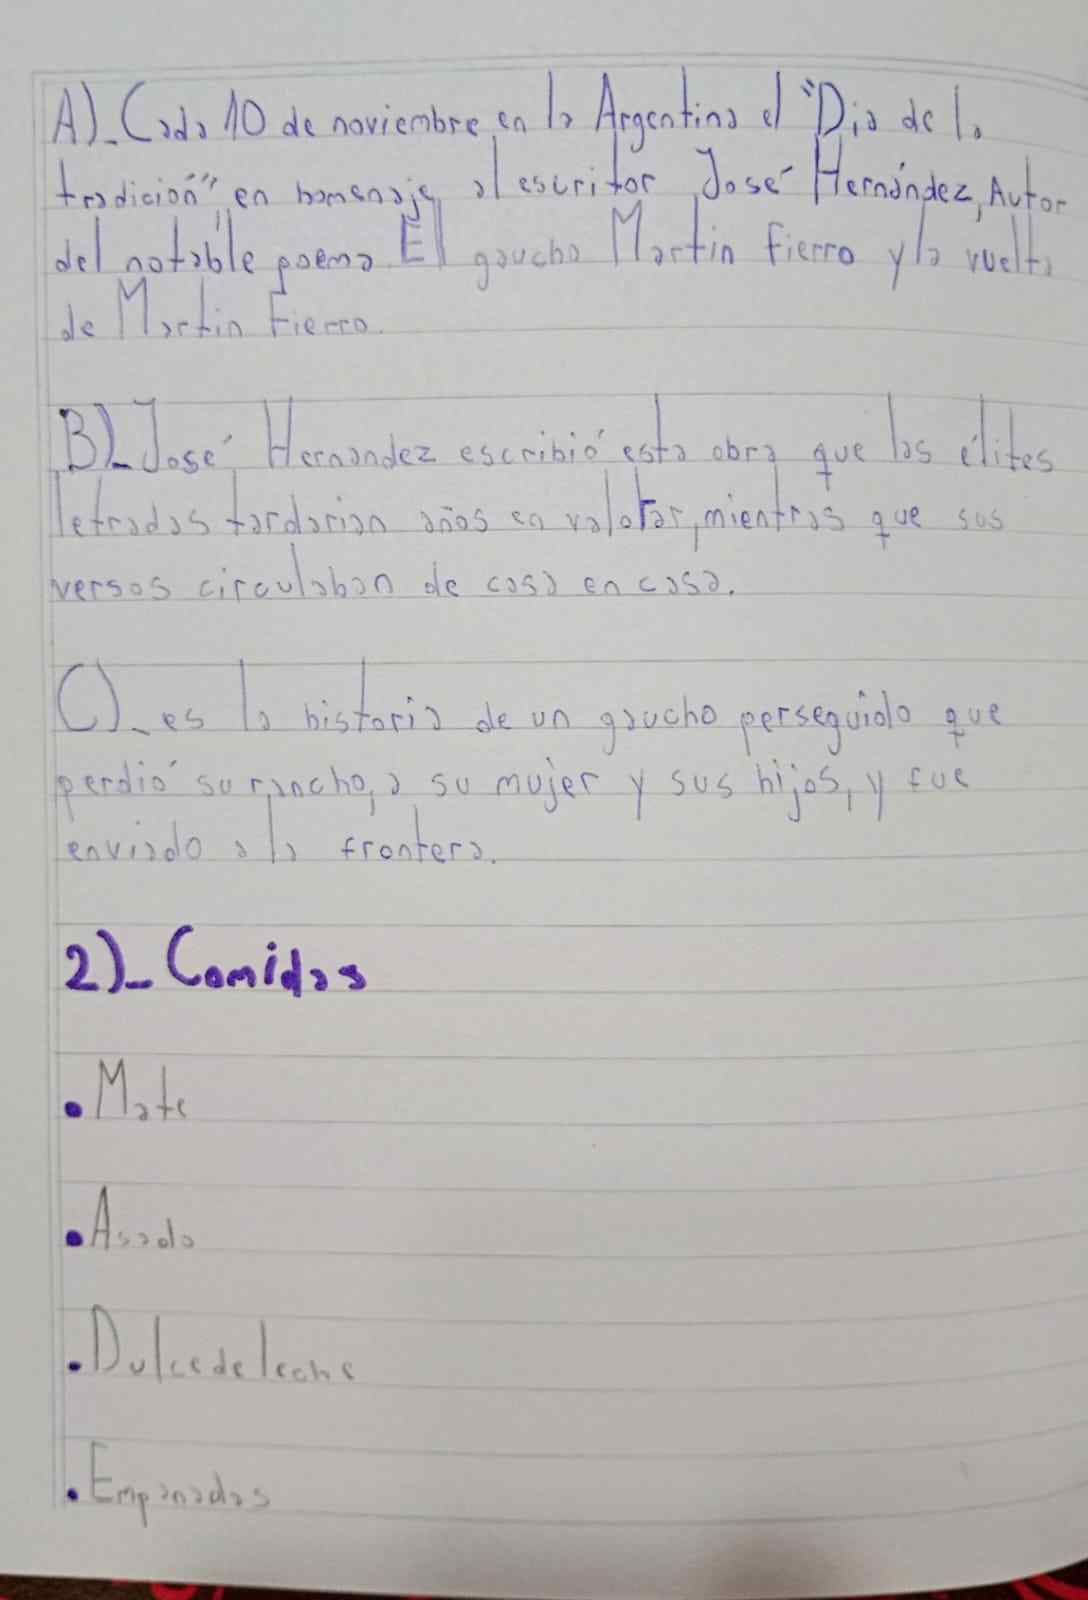 A)_Cada 10 de noviembre en la Argentina el "Dia de la
tradición" en homenaje al escritor José Hernández, Autor
del notable poema El gaucho Martin fierro y la vuelta
de Martin Fierro.
B)_José Hernandez escribió esta obra que las élites
letradas tardarian años en valorar, mientras que sus
versos circulaban de casa en casa.
C)_es la historia de un gaucho perseguido que
perdió su rancho, a su mujer y sus hijos, y fue
enviado a la frontera.
2)_Comidas
•Mate
•Asado
•Dulce de leche
•Empanadas